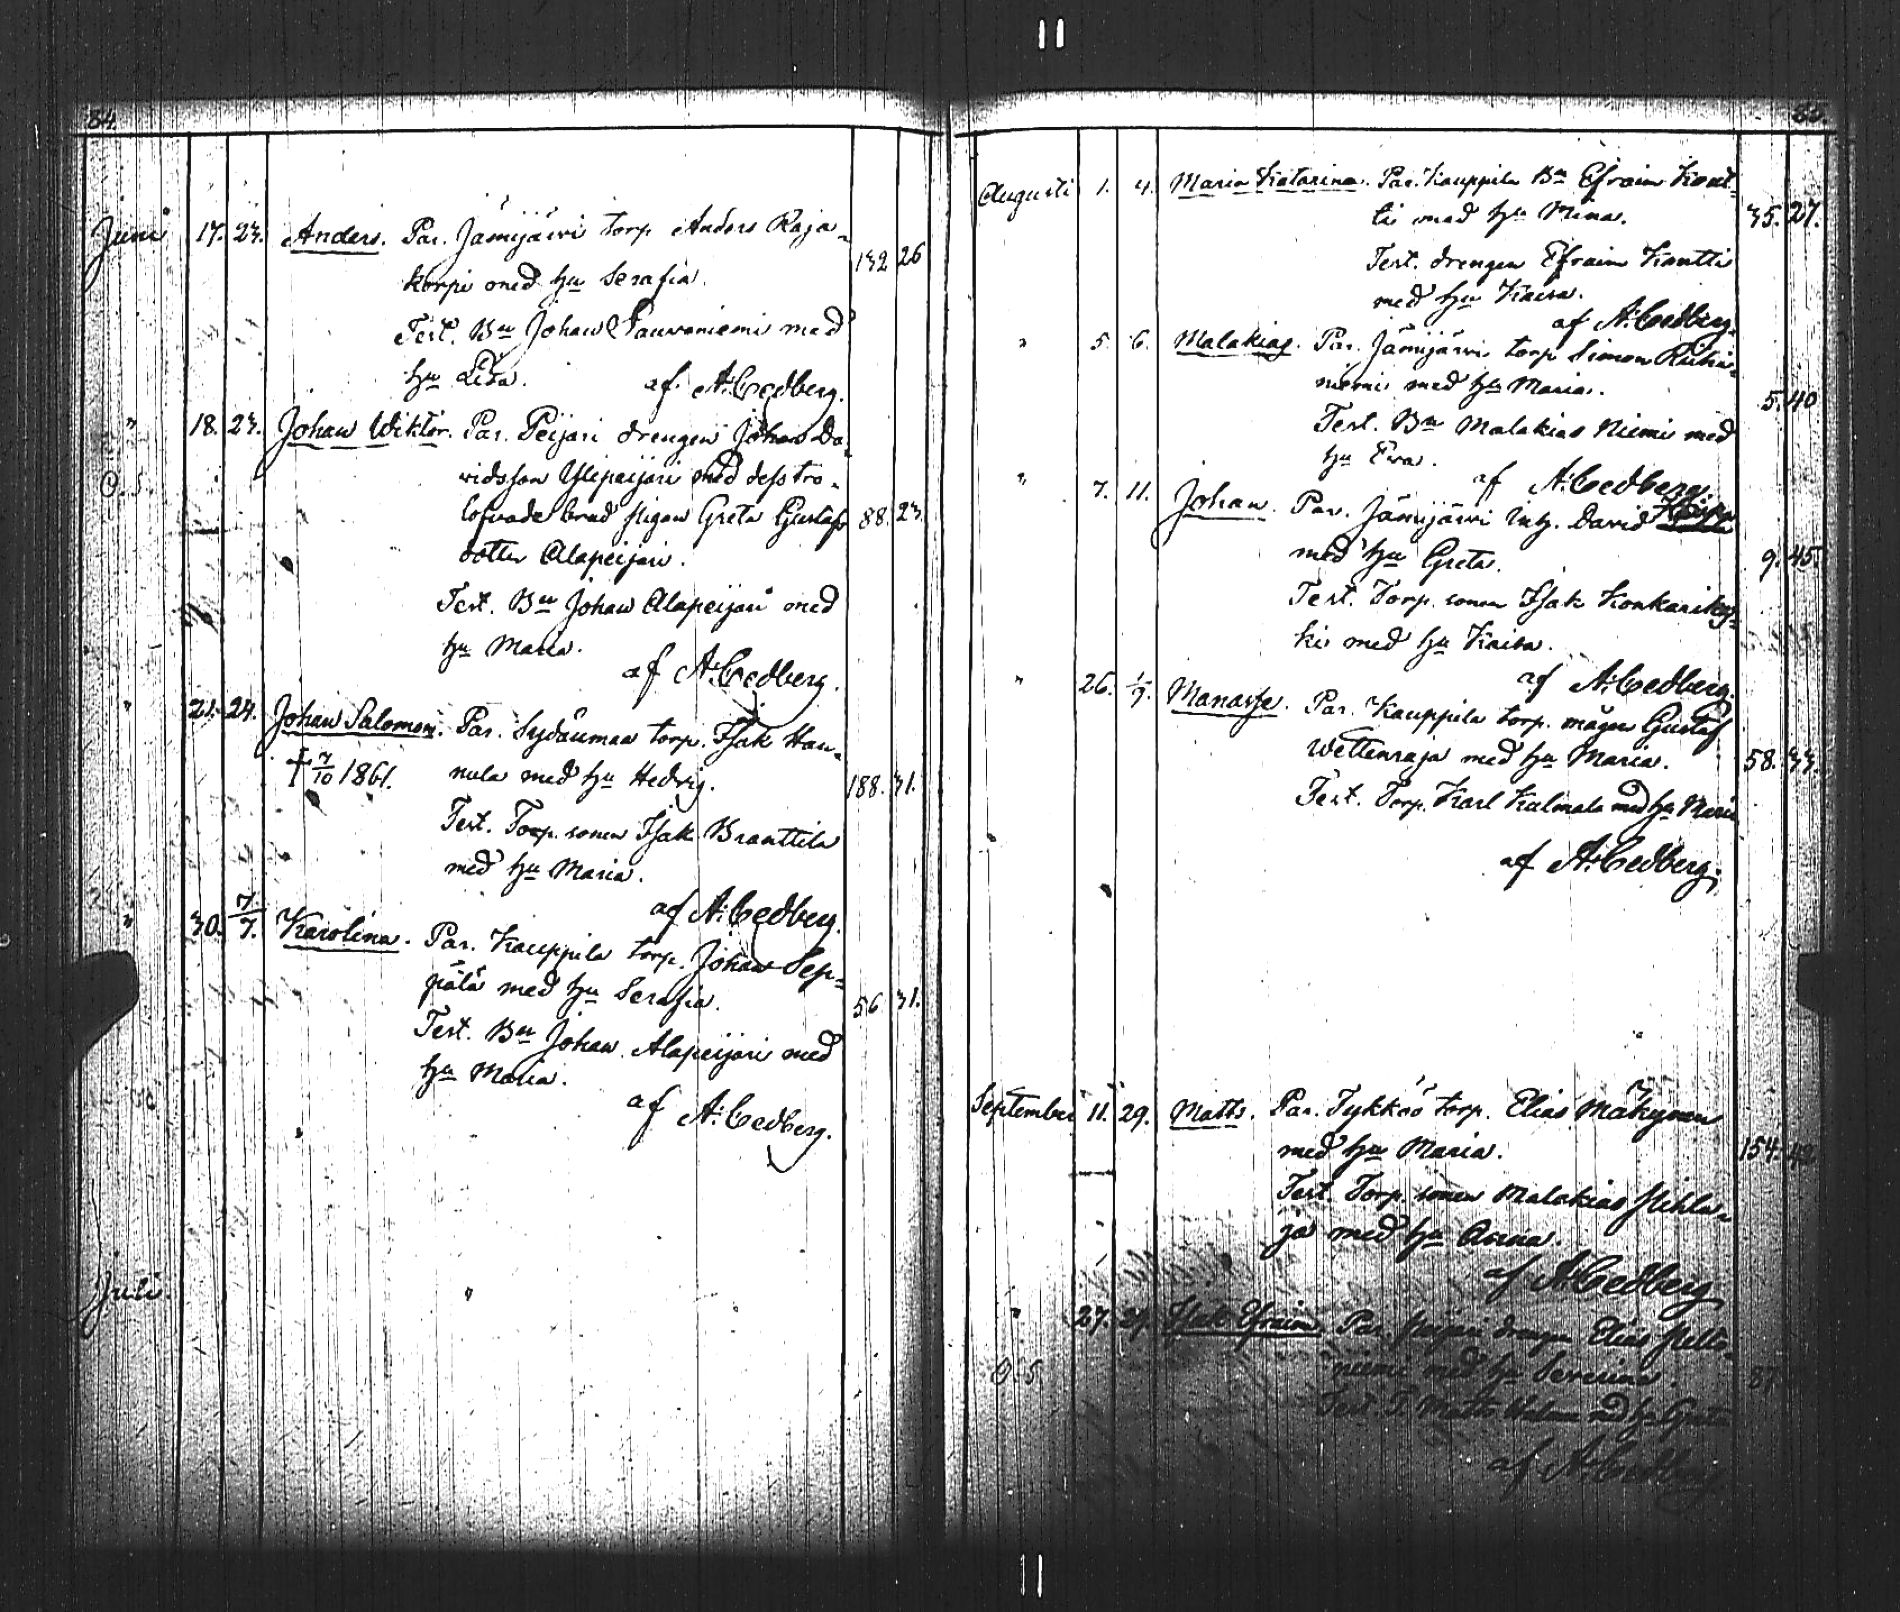 84.
Juni 17. 23. Anders. Par. Jämijärvi torp Anders Raja-
korpi med hu Serafia. 132 26
Test. Bn Johan Lauroniemi med
hu Lisa. af A: Cedberg.
" 18. 23. Johan Wiktor. Par. Peijari drengen Johan Da-
O. S. vidsson Ylipeijari med dess tro-
lofvade brud pigan Greta Gustafs 88. 23.
dotter Alapeijari.
Test. Bn Johan Alapeijari med
hu Maria.
af A: Cedberg.
" 21. 24. Johan Salomon. Par. Sydänmaa torp. Isak Han-
† 7/10 1861. nula med hu Hedvig. 188. 31.
Test. Torp. sonen Isak Branttila
med hu Maria.
af A: Cedberg.
" 30. 7/7. Karolina. Par. Kauppila torp. Johan Sep-
pälä med hu Serafia. 56 31.
Test. Bn Johan Alapeijari med
hu Maria.
af A: Cedberg.
Juli.
85.
Augusti 1. 4. Maria Katarina. Par. Kauppila Bn Efraim Kont-
ti med hu Mina. 35. 27.
Test. drengen Efraim Kontti
med hu Kaisa.
af A: Cedberg.
" 5. 6. Malakias. Par. Jämijärvi torp Simon Riihi-
niemi med hu Maria. 5. 40
Test. Bn Malakias Niemi med
hu Eva.
af A: Cedberg.
" 7. 11. Johan. Par. Jämijärvi Inh. David
med hu Greta. 9. 45.
Test. Torp. sonen Isak Konkarikos-
ki med hu Kaisa.
af A: Cedberg.
" 26. 1/9. Manasse. Par. Kauppila torp. mågen Gustaf
Wettenraja med hu Maria. 58. 33.
Test. Torp. Karl Kulmala med hu Maria
af A: Cedberg.
September 11. 29. Matts. Par. Tykköö torp. Elias Mäkynen
med hu Maria. 154. 42
Test. Torp. sonen Malakias Pihla-
ja med hu Anna.
af A: Cedberg
" 27. 29. Isak Efraim. Par. Peijari drengen Elias Pelto-
O. S. niemi med hu Severina. 87
Test. T. Matts med hu Greta
af A: Cedberg